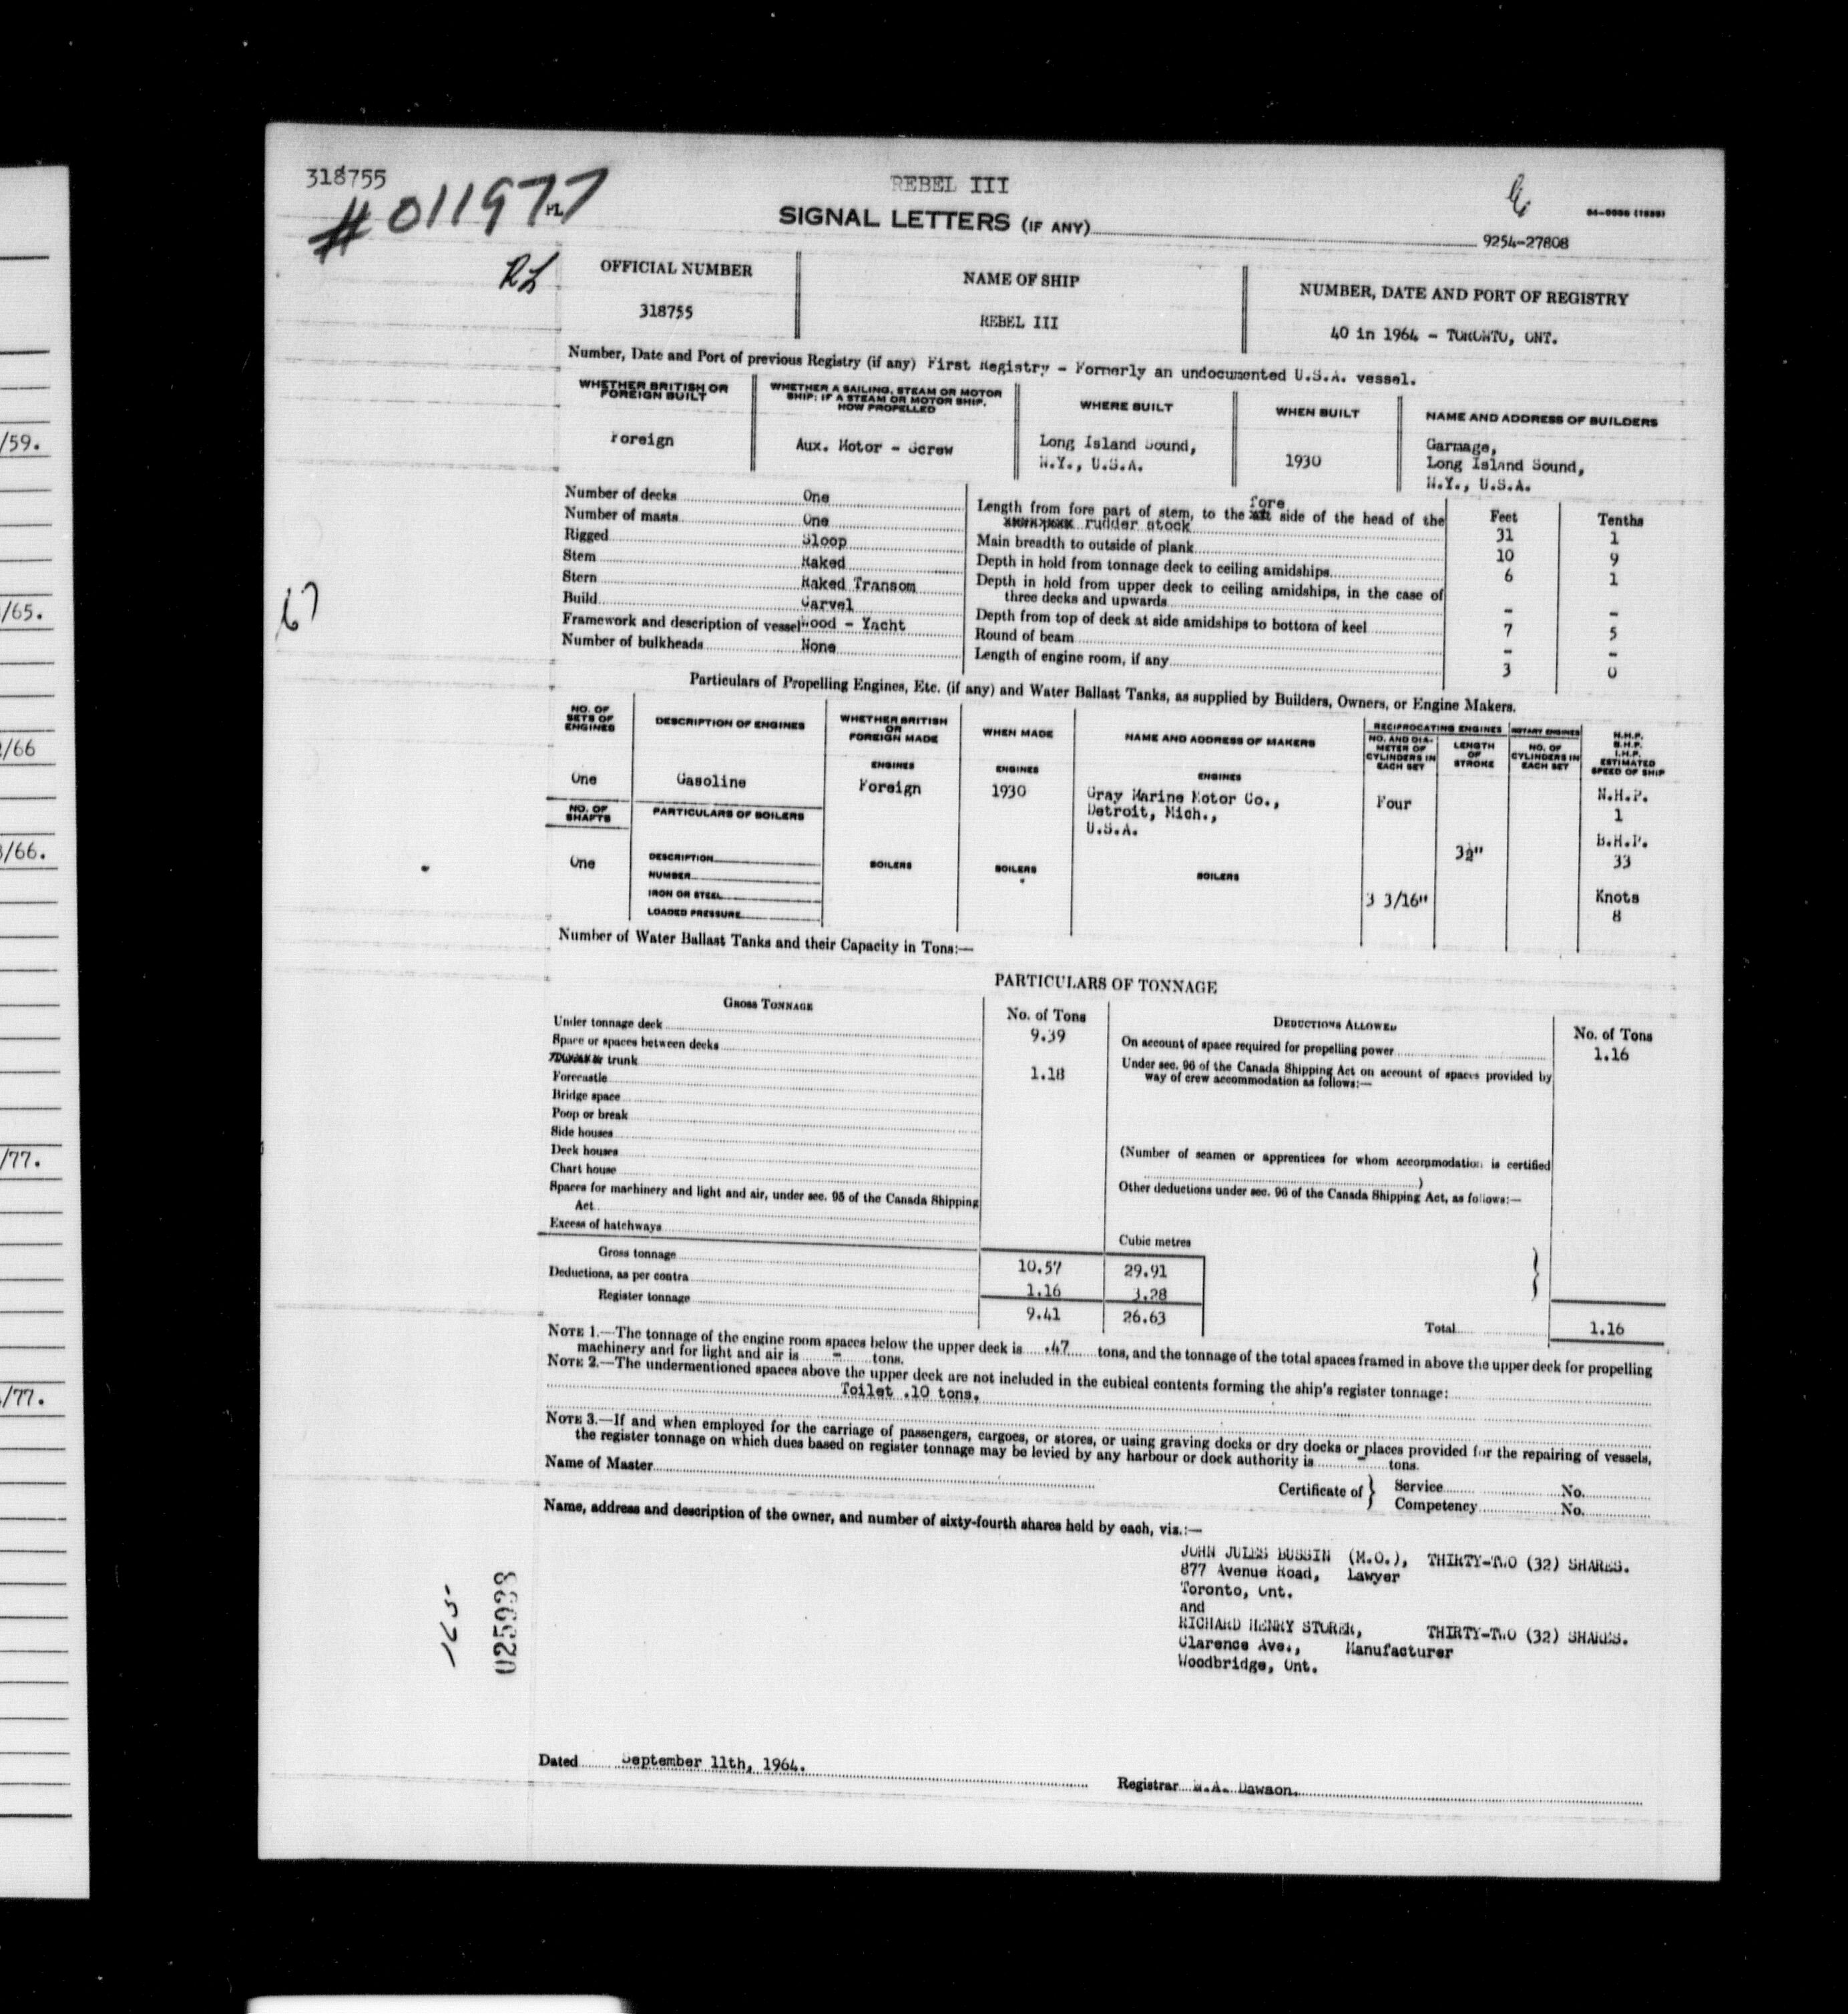 318755
#011977
PL
RL
REBEL III
SIGNAL LETTERS (IF ANY)
9254-27808
OFFICIAL NUMBER
318755
NAME OF SHIP
REBEL III
NUMBER, DATE AND PORT OF REGISTRY
40 in 1964 - TORONTO, ONT.
Number, Date and Port of previous Registry (if any) First Registry - Formerly an undocumented U.S.A. vessel.
WHETHER BRITISH OR
FOREIGN BUILT
Foreign
WHETHER A SAILING, STEAM OR MOTOR
SHIP; IF A STEAM OR MOTOR SHIP,
HOW PROPELLED
Aux. Motor - Screw
WHERE BUILT
Long Island Sound,
N.Y., U.S.A.
WHEN BUILT
1930
NAME AND ADDRESS OF BUILDERS
Garmage,
Long Island Sound,
N.Y., U.S.A.
Number of decks One
Number of masts One
Rigged Sloop
Stem Raked
Stern Raked Transom
Build Carvel
Framework and description of vessel Wood - Yacht
Number of bulkheads None
Feet Tenths
Length from fore part of stem, to the fore side of the head of the
rudder stock 31 1
Main breadth to outside of plank 10 9
Depth in hold from tonnage deck to ceiling amidships 6 1
Depth in hold from upper deck to ceiling amidships, in the case of
three decks and upwards - -
Depth from top of deck at side amidships to bottom of keel 7 5
Round of beam - -
Length of engine room, if any 3 0
Particulars of Propelling Engines, Etc. (if any) and Water Ballast Tanks, as supplied by Builders, Owners, or Engine Makers.
NO. OF
SETS OF
ENGINES
One
NO. OF
SHAFTS
One
DESCRIPTION OF ENGINES
Gasoline
PARTICULARS OF BOILERS
DESCRIPTION
NUMBER
IRON OR STEEL
LOADED PRESSURE
WHETHER BRITISH
OR
FOREIGN MADE
ENGINES
Foreign
BOILERS
WHEN MADE
ENGINES
1930
BOILERS
NAME AND ADDRESS OF MAKERS
ENGINES
Gray Marine Motor Co.,
Detroit, Mich.,
U.S.A.
BOILERS
RECIPROCATING ENGINES
NO. AND DIA-
METER OF
CYLINDERS IN
EACH SET
Four
3 3/16"
LENGTH
OF
STROKE
3½"
ROTARY ENGINES
NO. OF
CYLINDERS IN
EACH SET
N.H.P.
B.H.P.
I.H.P.
ESTIMATED
SPEED OF SHIP
N.H.P.
1
B.H.P.
33
Knots
8
Number of Water Ballast Tanks and their Capacity in Tons:—
PARTICULARS OF TONNAGE
GROSS TONNAGE
No. of Tons
Under tonnage deck 9.39
Space or spaces between decks
trunk 1.18
Forecastle
Bridge space
Poop or break
Side houses
Deck houses
Chart house
Spaces for machinery and light and air, under sec. 95 of the Canada Shipping
Act
Excess of hatchways
Cubic metres
Gross tonnage 10.57 29.91
Deductions, as per contra 1.16 3.28
Register tonnage 9.41 26.63
DEDUCTIONS ALLOWED
No. of Tons
On account of space required for propelling power 1.16
Under sec. 96 of the Canada Shipping Act on account of spaces provided by
way of crew accommodation as follows:—
(Number of seamen or apprentices for whom accommodation is certified
)
Other deductions under sec. 96 of the Canada Shipping Act, as follows:—
Total 1.16
NOTE 1.—The tonnage of the engine room spaces below the upper deck is .47 tons, and the tonnage of the total spaces framed in above the upper deck for propelling
machinery and for light and air is - tons.
NOTE 2.—The undermentioned spaces above the upper deck are not included in the cubical contents forming the ship's register tonnage:
Toilet .10 tons.
NOTE 3.—If and when employed for the carriage of passengers, cargoes, or stores, or using graving docks or dry docks or places provided for the repairing of vessels,
the register tonnage on which dues based on register tonnage may be levied by any harbour or dock authority is - tons.
Name of Master
Certificate of } Service No.
Competency No.
Name, address and description of the owner, and number of sixty-fourth shares held by each, viz.:—
JOHN JULES BUSSIN (M.O.), THIRTY-TWO (32) SHARES.
877 Avenue Road, Lawyer
Toronto, Ont.
and
RICHARD HENRY STORER, THIRTY-TWO (32) SHARES.
Clarence Ave., Manufacturer
Woodbridge, Ont.
025938
Dated September 11th, 1964.
Registrar M.A. Dawson.
/59.
/65.
/66
/66.
/77.
/77.